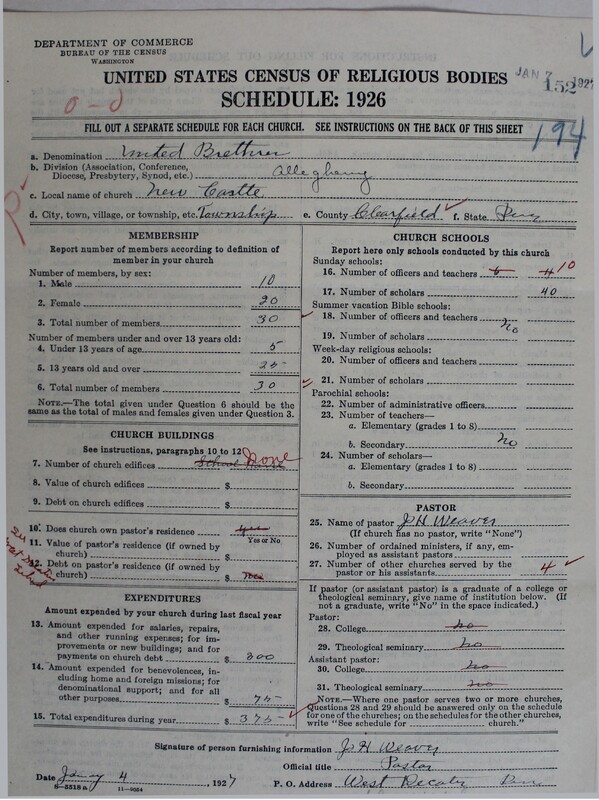 DEPARTMENT OF COMMERCE
BUREAU OF THE CENSUS
WASHINGTON
UNITED STATES CENSUS OF RELIGIOUS BODIES
JAN 7 1927
152
SCHEDULE: 1926
FILL OUT A SEPARATE SCHEDULE FOR EACH CHURCH. SEE INSTRUCTIONS ON THE BACK OF THIS SHEET
194
a. Denomination United Brethren
b. Division (Association, Conference, Diocese, Presbytery, Synod, etc.) Allegheny
c. Local name of church New Castle
d. City, town, village, or township, etc. Township e. County Clearfield f. State Penn
MEMBERSHIP
Report number of members according to definition of
member in your church
Number of members, by sex:
1. Male 10
2. Female 20
3. Total number of members 30
Number of members under and over 13 years old:
4. Under 13 years of age 5
5. 13 years old and over 25
6. Total number of members 30
NOTE.—The total given under Question 6 should be the
same as the total of males and females given under Question 3.
CHURCH BUILDINGS
See instructions, paragraphs 10 to 12
7. Number of church edifices School House None
8. Value of church edifices $
9. Debt on church edifices $
10. Does church own pastor's residence yes
Yes or No
11. Value of pastor's residence (if owned by
church) $
12. Debt on pastor's residence (if owned by
church) $
EXPENDITURES
Amount expended by your church during last fiscal year
13. Amount expended for salaries, repairs,
and other running expenses; for im-
provements or new buildings; and for
payments on church debt $ 300
14. Amount expended for benevolences, in-
cluding home and foreign missions; for
denominational support; and for all
other purposes $ 75-
15. Total expenditures during year $ 375-
CHURCH SCHOOLS
Report here only schools conducted by this church
Sunday schools:
16. Number of officers and teachers 6 4 10
17. Number of scholars 40
Summer vacation Bible schools:
18. Number of officers and teachers
no
19. Number of scholars
Week-day religious schools:
20. Number of officers and teachers
21. Number of scholars
Parochial schools:
22. Number of administrative officers
23. Number of teachers—
a. Elementary (grades 1 to 8)
b. Secondary no
24. Number of scholars—
a. Elementary (grades 1 to 8)
b. Secondary
PASTOR
25. Name of pastor J H Weaver
(If church has no pastor, write "None")
26. Number of ordained ministers, if any, em-
ployed as assistant pastors
27. Number of other churches served by the
pastor or his assistants 4
If pastor (or assistant pastor) is a graduate of a college or
theological seminary, give name of institution below. (If
not a graduate, write "No" in the space indicated.)
Pastor:
28. College no
29. Theological seminary no
Assistant pastor:
30. College no
31. Theological seminary no
NOTE.—Where one pastor serves two or more churches,
Questions 28 and 29 should be answered only on the schedule
for one of the churches; on the schedules for the other churches,
write "See schedule for church."
Signature of person furnishing information J H Weaver
Official title Pastor
Date Jany 4 1927 P. O. Address West Decatur Penn
8-5518a 11-9564